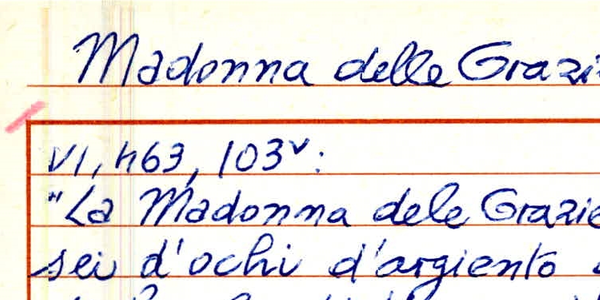 Madonna delle Grazi
VI, 463, 103v:
"La Madonna dele Grazie
sei d'ochi d'argiento